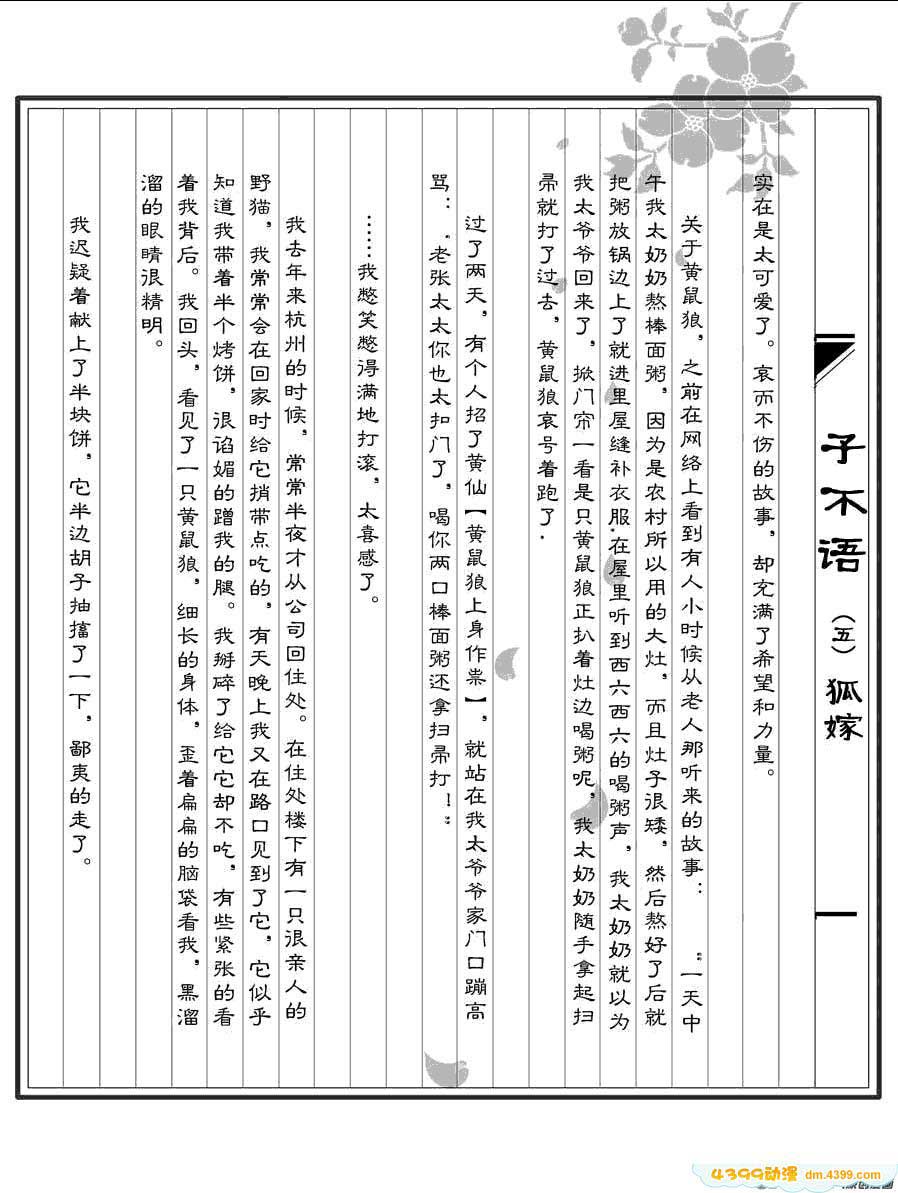 子不语（五）狐嫁
实在是太可爱了。哀而不伤的故事，却充满了希望和力量。
关于黄鼠狼，之前在网络上看到有人小时候从老人那听来的故事：“一天中
午我太奶奶熬棒面粥，因为是农村所以用的大灶，而且灶子很矮，然后熬好了后就
把粥放锅边上了就进里屋缝补衣服.在屋里听到西六西六的喝粥声，我太奶奶就以为
我太爷爷回来了，掀门帘一看是只黄鼠狼正扒着灶边喝粥呢，我太奶奶随手拿起扫
帚就打了过去，黄鼠狼哀号着跑了.
过了两天，有个人招了黄仙【黄鼠狼上身作祟】，就站在我太爷爷家门口蹦高
骂：“老张太太你也太扣门了，喝你两口棒面粥还拿扫帚打！”
……我憋笑憋得满地打滚，太喜感了。
我去年来杭州的时候，常常半夜才从公司回住处。在住处楼下有一只很亲人的
野猫，我常常会在回家时给它捎带点吃的，有天晚上我又在路口见到了它，它似乎
知道我带着半个烤饼，很谄媚的蹭我的腿。我掰碎了给它它却不吃，有些紧张的看
着我背后。我回头，看见了一只黄鼠狼，细长的身体，歪着扁扁的脑袋看我，黑溜
溜的眼睛很精明。
我迟疑着献上了半块饼，它半边胡子抽搐了一下，鄙夷的走了。
4399动漫 dm.4399.com